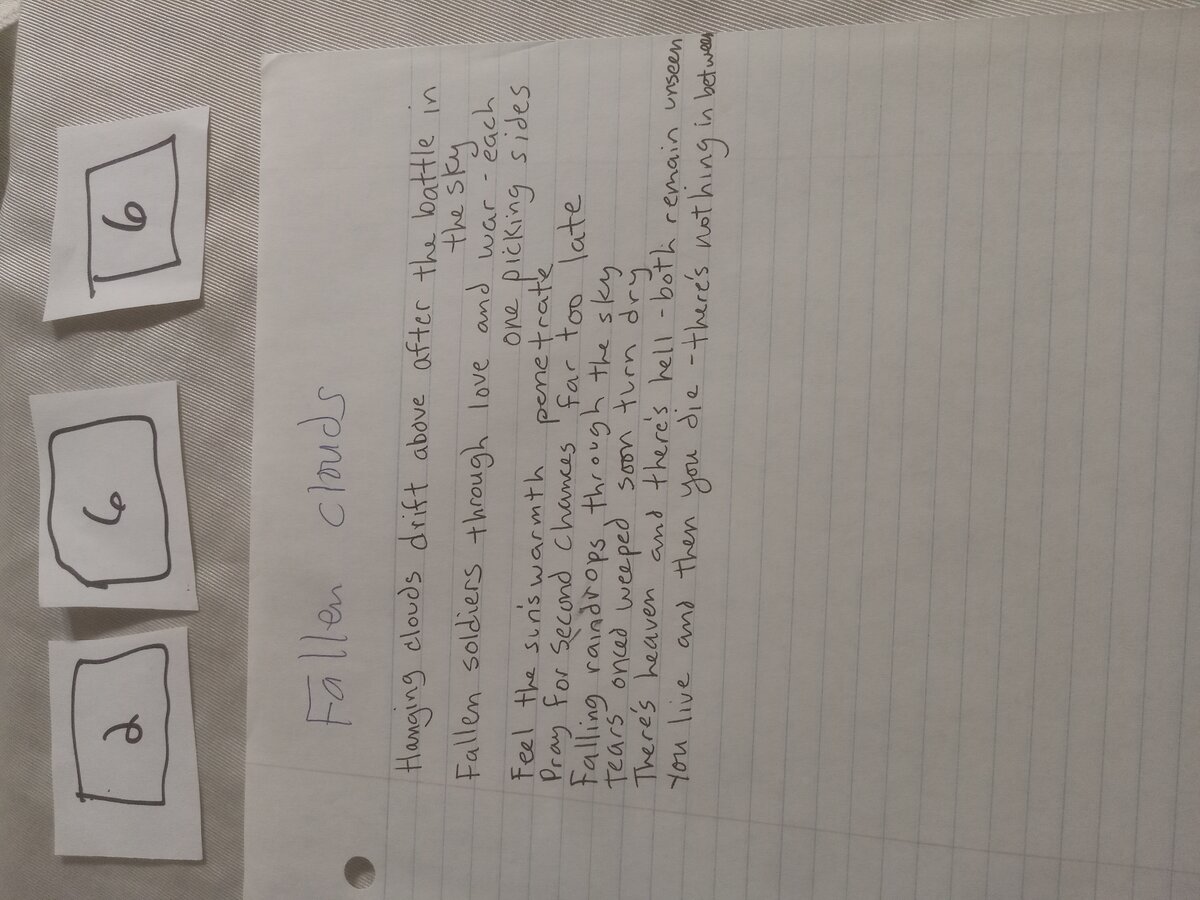 2 6 6
Fallen clouds
Hanging clouds drift above after the battle in
the sky
Fallen soldiers through love and war - each
one picking sides
Feel the sun's warmth penetrate
Pray for second chances far too late
Falling raindrops through the sky
Tears onced weeped soon turn dry
There's heaven and there's hell - both remain unseen
You live and then you die - there's nothing in between